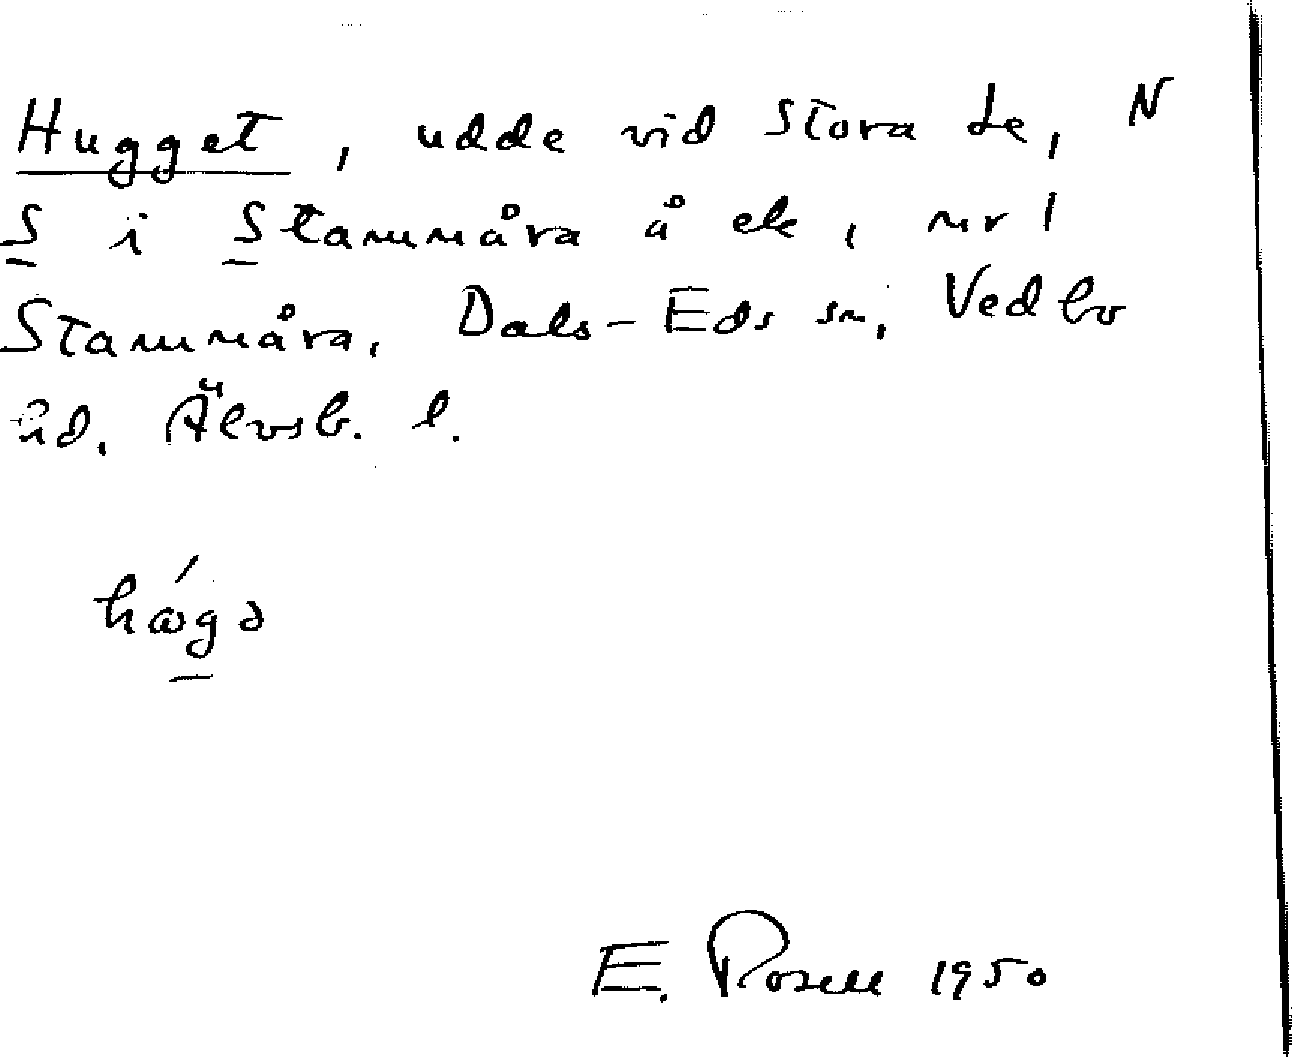 Hugget, udde vid Stora Le, N
S i Stammåra å ek, nr 1
Stammåra, Dals-Eds sn, Vedbo
hd. Älvsb. l.
E. Rosell 1950